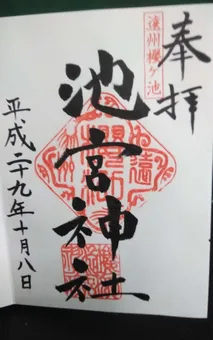 奉拝
遠州櫻ヶ池
池宮神社
平成二十九年十月八日